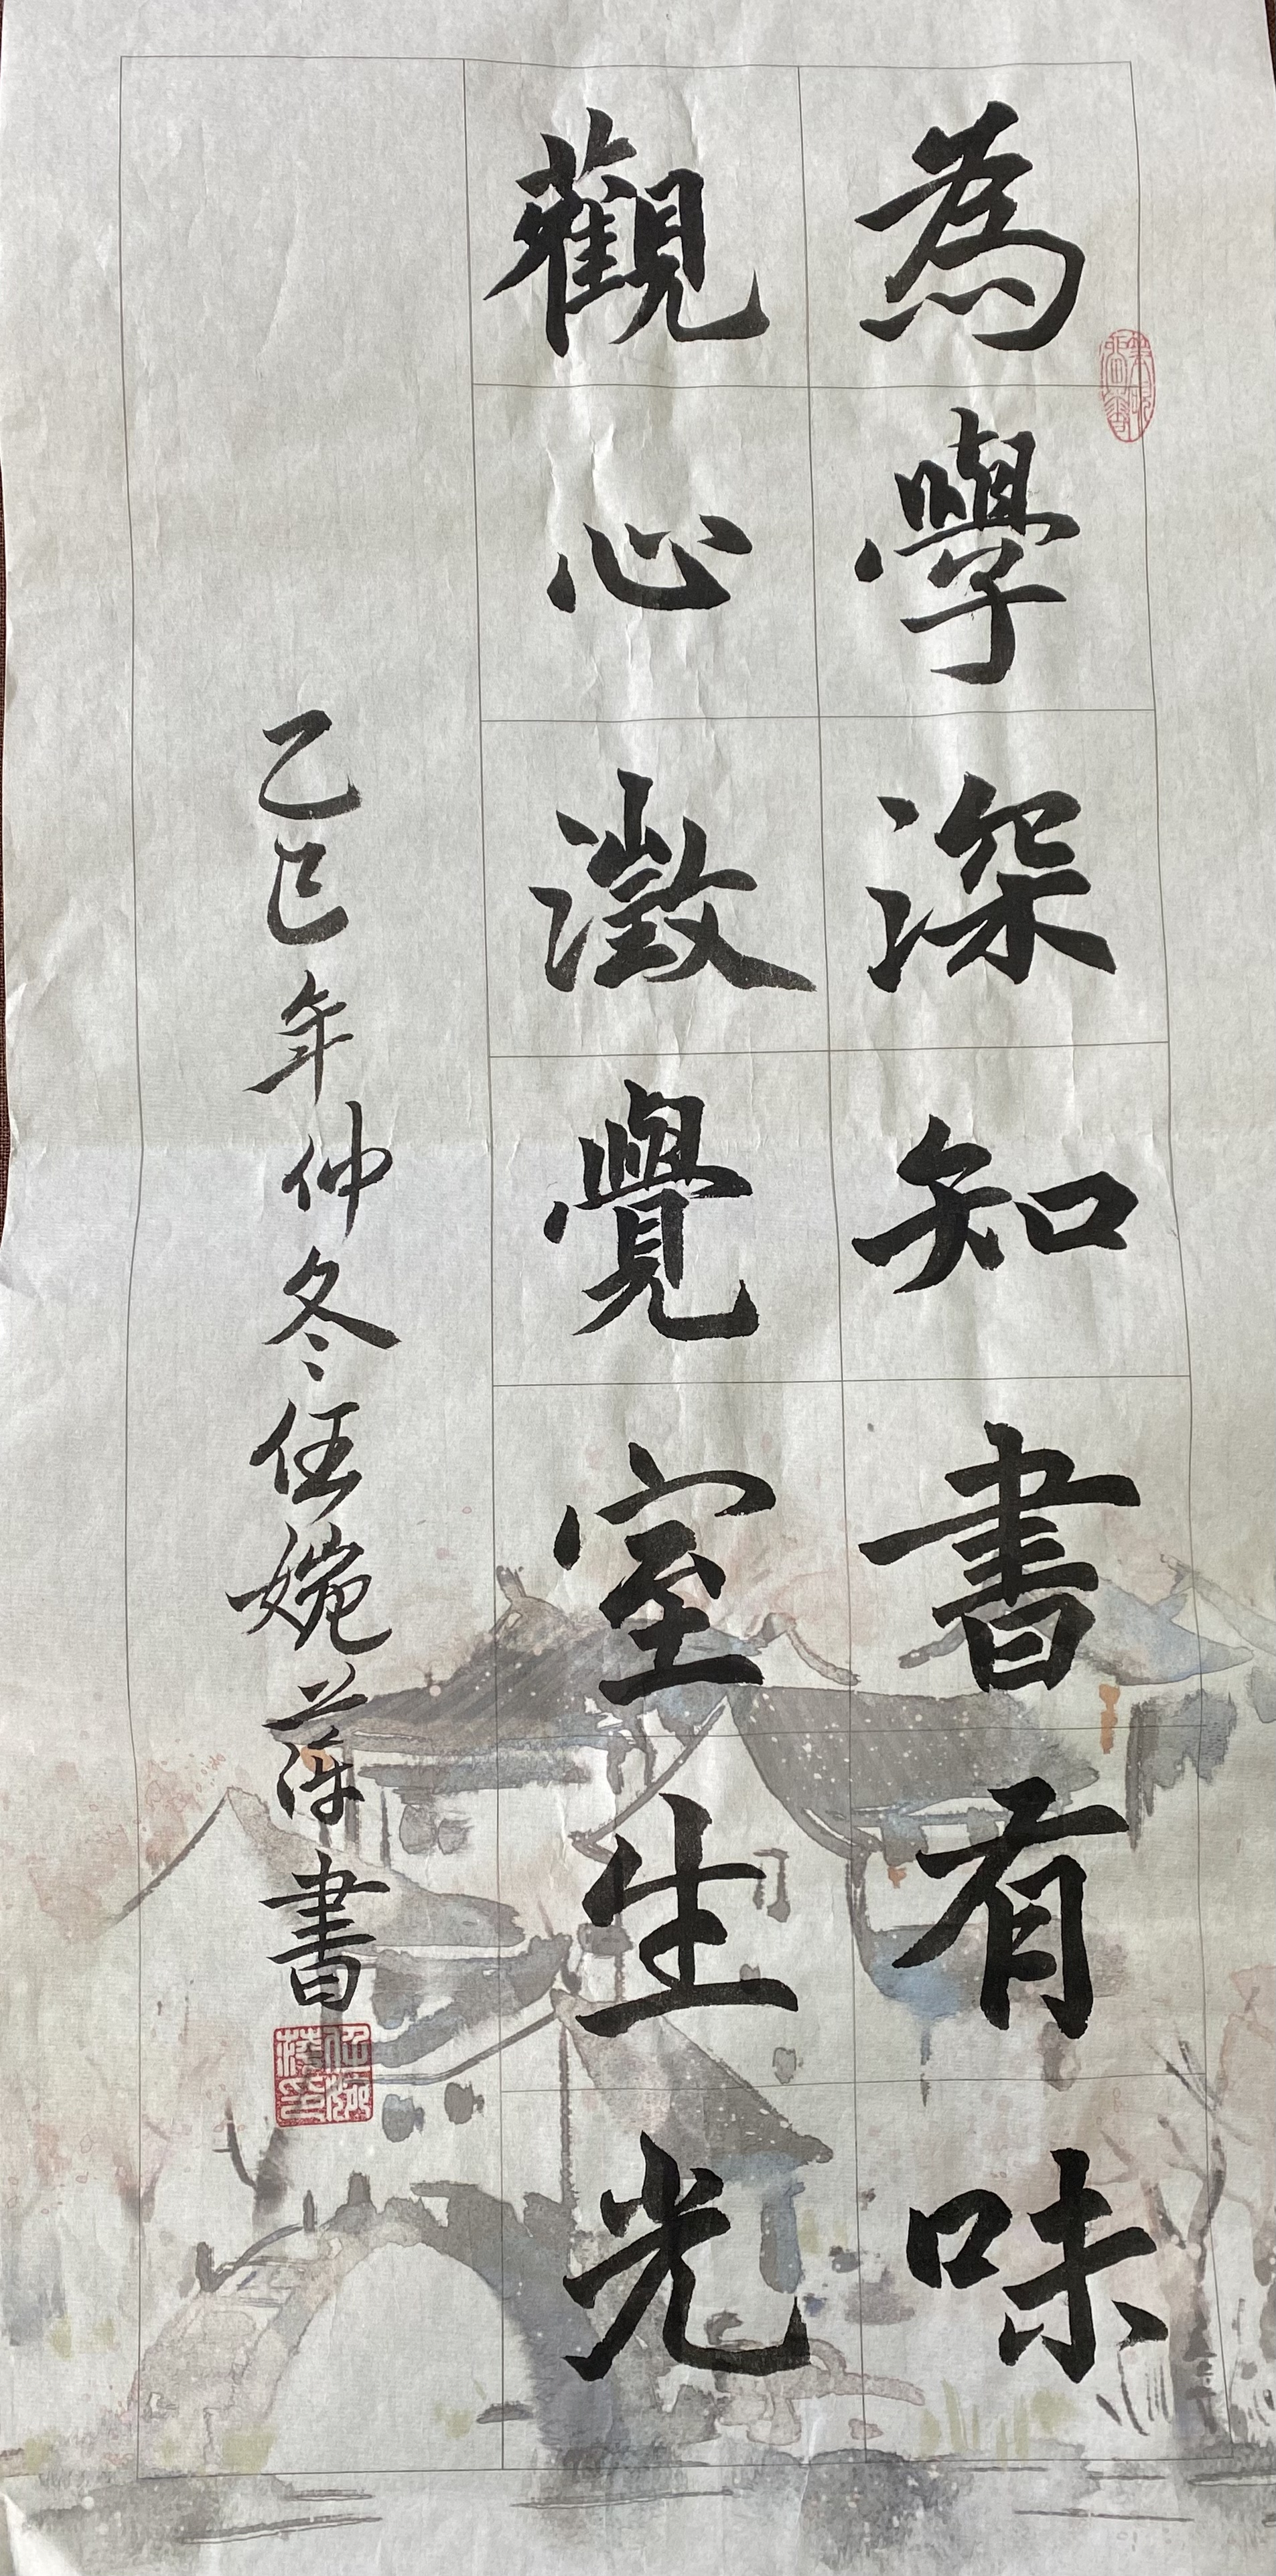 為學深知書有味
觀心澂覺室生光
乙巳年仲冬任婉萍書